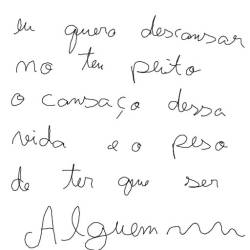 eu quero descansar
no teu peito
o cansaço dessa
vida e o peso
de ter que ser
Alguem